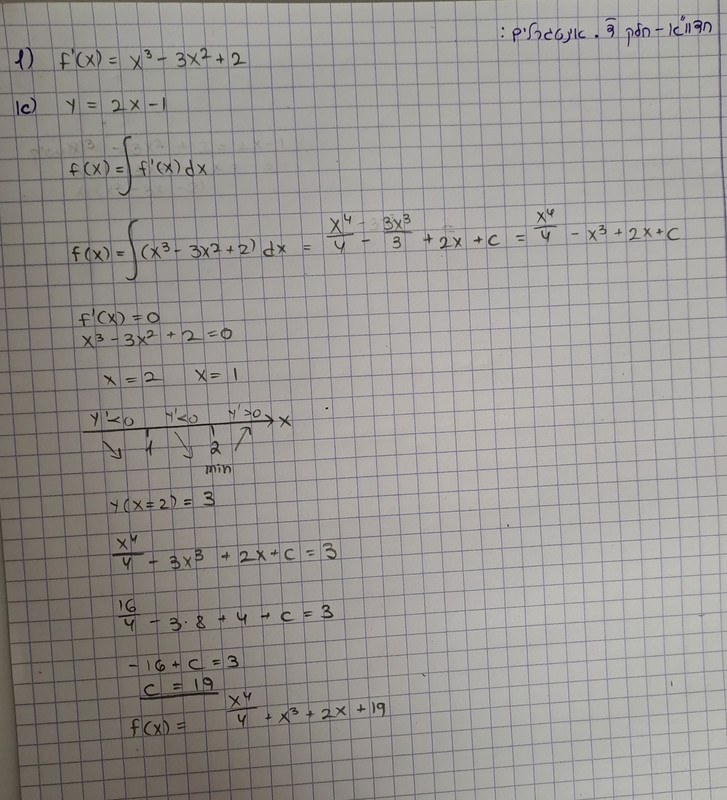 1) f'(x) = x³ - 3x² + 2
א) y = 2x - 1
f(x) = ∫ f'(x) dx
f(x) = ∫ (x³ - 3x² + 2) dx = x⁴/4 - 3x³/3 + 2x + c = x⁴/4 - x³ + 2x + c
f'(x) = 0
x³ - 3x² + 2 = 0
x = 2 x = 1
y' < 0 y' < 0 y' > 0 x
↘ 1 ↘ 2 ↗
min
y(x=2) = 3
x⁴/4 - 3x³ + 2x + c = 3
16/4 - 3·8 + 4 + c = 3
-16 + c = 3
c = 19
f(x) = x⁴/4 + x³ + 2x + 19